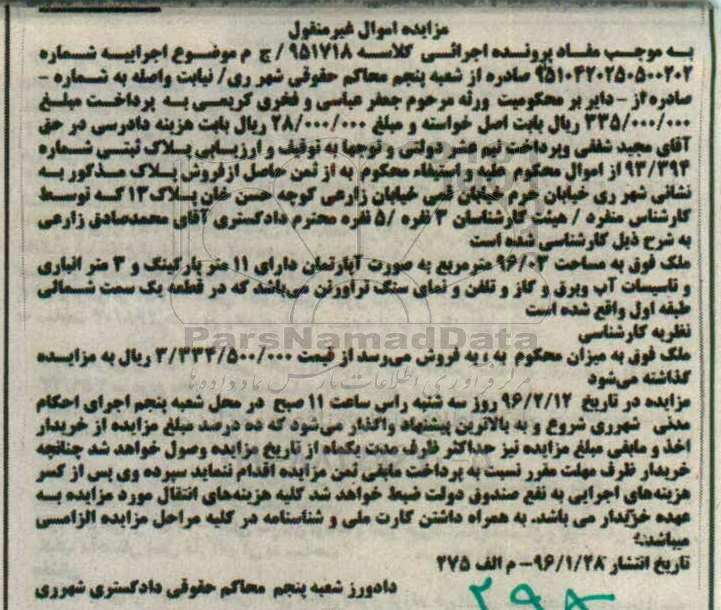 مزایده اموال غیرمنقول
به موجب مفاد پرونده اجرائی کلاسه ۹۵۱۷۱۸ / ج م موضوع اجراییه شماره
۹۵۱۰۴۲۰۲۵۰۵۰۰۲۰۲ صادره از شعبه پنجم محاکم حقوقی شهر ری/ نیابت واصله به شماره -
صادره از - دایر بر محکومیت ورثه مرحوم جعفر عباسی و فخری کریمی به پرداخت مبلغ
۳۳۵/۰۰۰/۰۰۰ ریال بابت اصل خواسته و مبلغ ۲۸/۰۰۰/۰۰۰ ریال بابت هزینه دادرسی در حق
آقای مجید شفقی وپرداخت نیم عشر دولتی و توجها به توقیف و ارزیابی پلاک ثبتی شماره
۹۳/۳۹۴ از اموال محکوم علیه و استیفاء محکوم به از ثمن حاصل ازفروش پلاک مذکور به
نشانی شهر ری خیابان حرم خیابان قمی خیابان زارعی کوچه حسن خان پلاک ۱۳ که توسط
کارشناس منفره / هیئت کارشناسان ۳ نفره /۵ نفره محترم دادگستری آقای محمدصادق زارعی
به شرح ذیل کارشناسی شده است
ملک فوق به مساحت ۹۶/۰۳ مترمربع به صورت آپارتمان دارای ۱۱ متر پارکینگ و ۳ متر انباری
و تاسیسات آب وبرق و گاز و تلفن و نمای سنگ تراورتن می‌باشد که در قطعه یک سمت شمالی
طبقه اول واقع شده است
ParsNamadData
نظریه کارشناسی
ملک فوق به میزان محکوم به ، به فروش می‌رسد از قیمت ۳/۳۳۴/۵۰۰/۰۰۰ ریال به مزایده
گذاشته می‌شود
مزایده در تاریخ ۹۶/۲/۱۲ روز سه شنبه راس ساعت ۱۱ صبح در محل شعبه پنجم اجرای احکام
مدنی شهرری شروع و به بالاترین پیشنهاد واگذار می‌شود که ده درصد مبلغ مزایده از خریدار
اخذ و مابقی مبلغ مزایده نیز حداکثر ظرف مدت یکماه از تاریخ مزایده وصول خواهد شد چنانچه
خریدار ظرف مهلت مقرر نسبت به پرداخت مابقی ثمن مزایده اقدام ننماید سپرده وی پس از کسر
هزینه‌های اجرایی به نفع صندوق دولت ضبط خواهد شد کلیه هزینه‌های انتقال مورد مزایده به
عهده خریدار می باشد. به همراه داشتن کارت ملی و شناسنامه در کلیه مراحل مزایده الزامی
میباشد.
تاریخ انتشار ۹۶/۱/۲۸- م الف ۲۷۵
دادورز شعبه پنجم محاکم حقوقی دادگستری شهرری